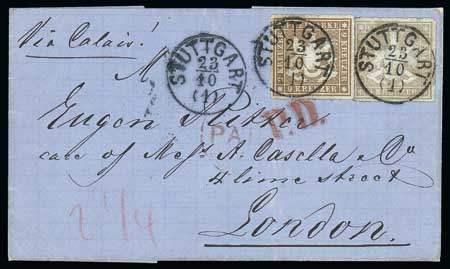 Via Calais!
STUTTGART
23
10
(1)
STUTTGART
23
10
(1)
STUTTGART
23
10
(1)
9 KREUZER
M.
PA
P.D.
Eugen Ritter
care of Messrs A. Casella & Co
4 lime street
2 1/4
London.